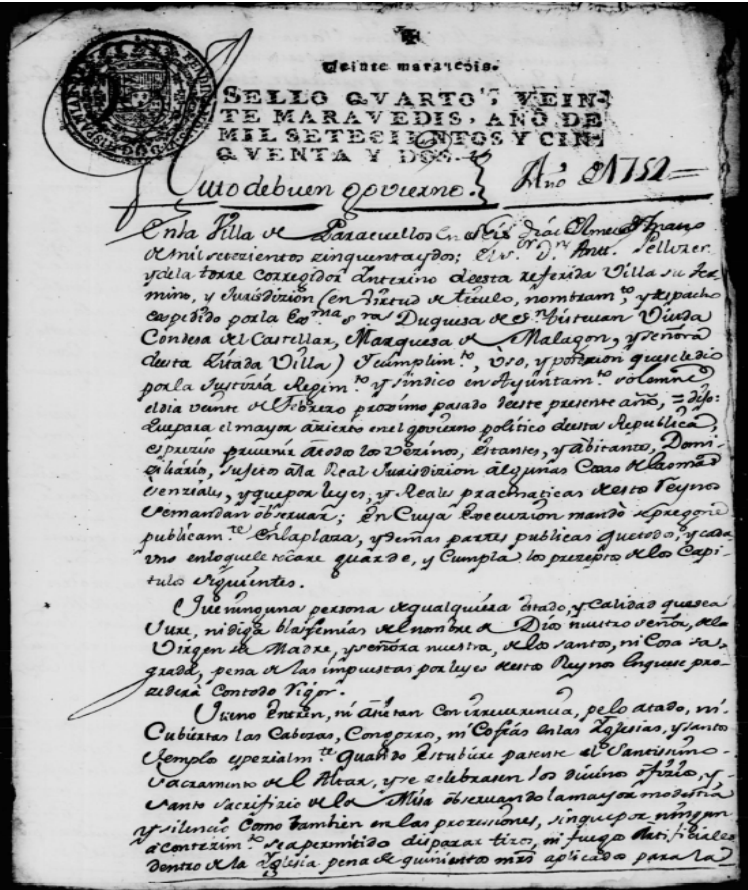 Veinte maravedis.
SELLO QVARTO, VEIN-
TE MARAVEDIS, AÑO DE
MIL SETECIENTOS Y CIN-
QVENTA Y DOS.
Auto de buen govierno. Año de 1752=
En la Villa de Paracuellos en seis dias del mes de Marzo
de mil setezientos zinquenta y dos; el Sr. Dn. Antt. Pellizer
y de la torre corregidor Ynterino de esta referida Villa su ter-
mino, y Jurisdizion (en Virtud de titulo, nombram.to, y despacho
expedido por la Ex.ma S.ra Duquesa de S.n Estevan Viuda
Condesa del Castellar, Marquesa de Malagon, y señora
desta Zitada Villa) Y cumplim.to, vso, y posesion que se le dio
por la Justizia Regim.to y sindico en Ayuntam.to solemne
el dia veinte de Febrero proximo pasado deeste presente año, = dijo:
Que para el mayor azierto en el govierno politico desta Republica,
es preziso prevenir a todos los vezinos, estantes, y abitantes, Domi-
ziliarios, sujetos a la Real Jurisdizion algunas Cosas de las mas
esenziales, y que por leyes, y Reales pracmaticas destos Reynos
se mandan observar; en Cuya execuzion mandó se pregone
publicam.te en la plaza, y demas partes publicas que todos, y cada
vno en lo que le tocare guarde, y Cumpla los prezeptos de los Capi-
tulos siguientes.
Que ninguna persona de qualquiera estado, y calidad que sea
Jure, ni diga blasfemias del nombre de Dios nuestro señor, de la
Virgen su Madre, y señora nuestra, de los santos, ni Cosa sa-
grada, pena de las impuestas por leyes destos Reynos en que se pro-
zederá Con todo Rigor.
Que no entren, ni asistan Con irreverencia, pelo atado, ni
Cubiertas las Cabezas, Con gorro, ni Cofias en las Yglesias, y santo
templo espezialm.te quando estubiere patente el Santissimo
Sacramento del Altar, y se zelebrasen los divinos ofizios, y
santo sacrifizio de la Misa observando la mayor modestia
y silencio Como tambien en las prozesiones, sin que por ningun
acontezim.to sea permitido disparar tiros, ni fuegos Artifiziales
dentro de la Yglesia pena de quinientos mrs aplicados para la